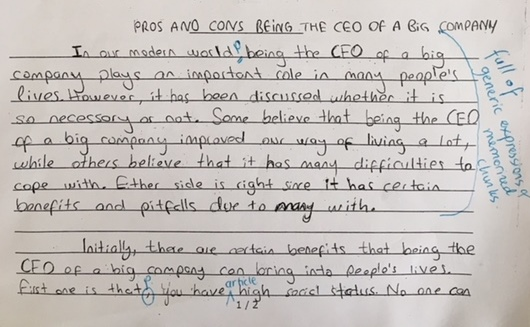 PROS AND CONS BEING THE CEO OF A BIG COMPANY
In our modern world, being the CEO of a big
company plays an important role in many people's
lives. However, it has been discussed whether it is
so necessary or not. Some believe that being the CEO
of a big company improved our way of living a lot,
while others believe that it has many difficulties to
cope with. Either side is right since it has certain
benefits and pitfalls due to many with.
Initially, there are certain benefits that being the
CEO of a big company can bring into people's lives.
First one is that, you have high social status. No one can
article
1/2
full of
generic expressions &
memorised
chunks.